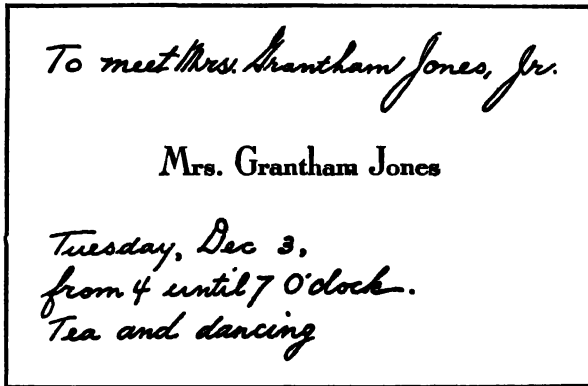 To meet Mrs. Grantham Jones, Jr.
Mrs. Grantham Jones
Tuesday, Dec 3,
from 4 until 7 O'clock.
Tea and dancing